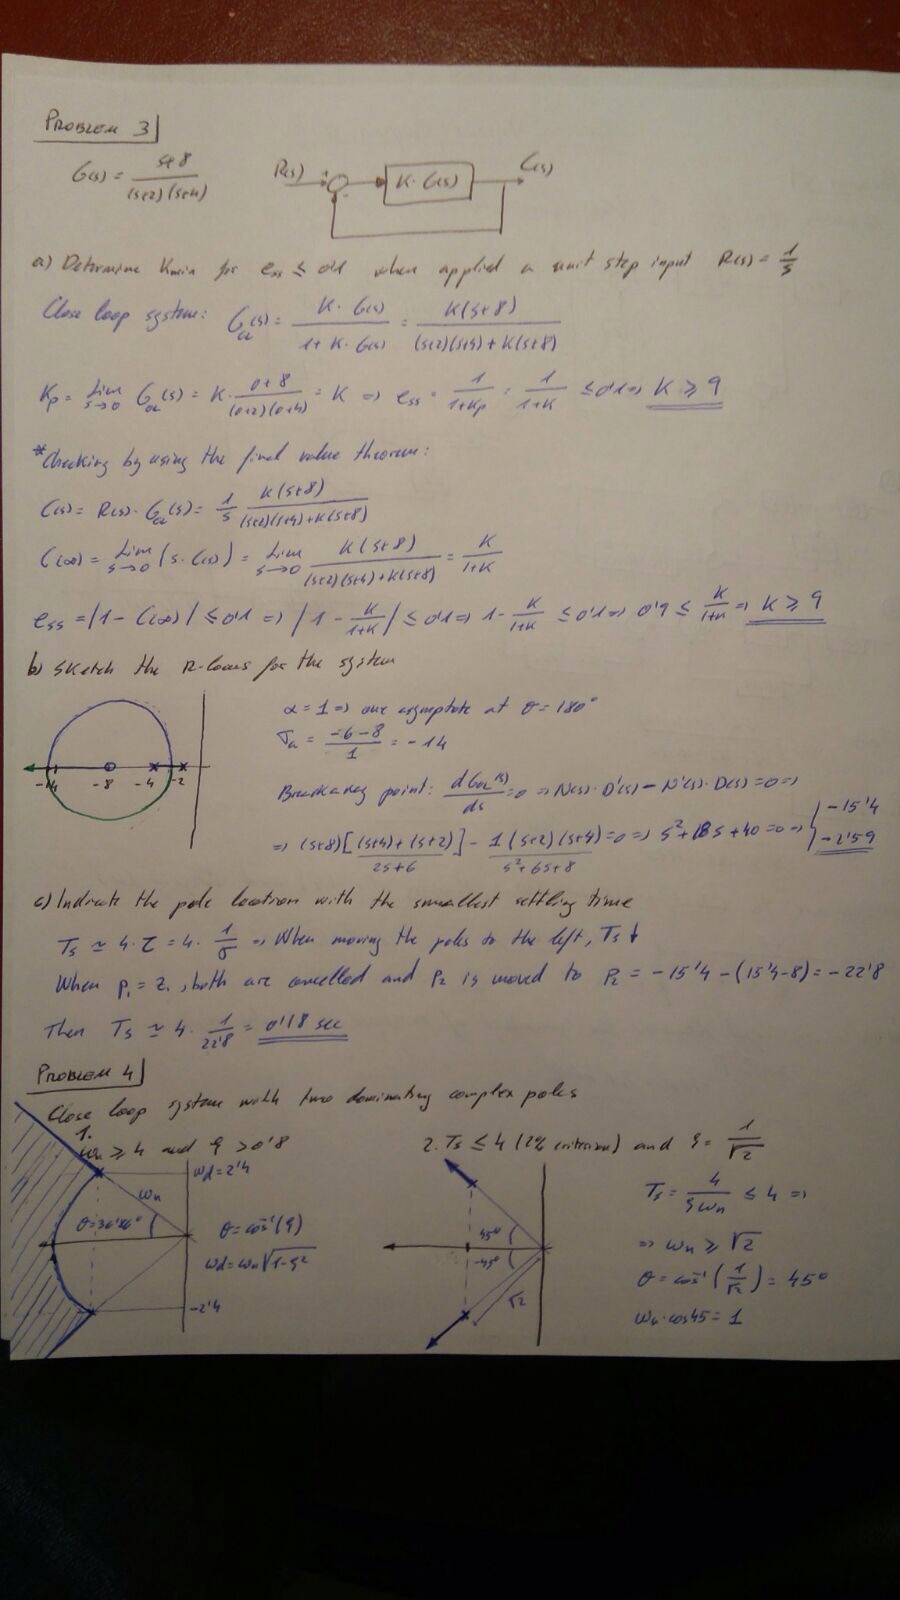 PROBLEM 3
G(s) = (s+8)/((s+2)(s+4))
R(s) + - K·G(s) C(s)
a) Determine Kmin for ess ≤ 0'1 when applied a unit step input R(s) = 1/s
Close loop system: G_CL(s) = K·G(s)/(1+K·G(s)) = K(s+8)/((s+2)(s+4)+K(s+8))
Kp = Lim s→0 G_OL(s) = K·(0+8)/((0+2)(0+4)) = K => ess = 1/(1+Kp) = 1/(1+K) ≤ 0'1 => K ≥ 9
*Checking by using the final value theorem:
C(s) = R(s)·G_CL(s) = 1/s K(s+8)/((s+2)(s+4)+K(s+8))
C(∞) = Lim s→0 (s·C(s)) = Lim s→0 K(s+8)/((s+2)(s+4)+K(s+8)) = K/(1+K)
ess = |1 - C(∞)| ≤ 0'1 => |1 - K/(1+K)| ≤ 0'1 => 1 - K/(1+K) ≤ 0'1 => 0'9 ≤ K/(1+K) => K ≥ 9
b) Sketch the R-locus for the system
-14 -8 -4 -2
α = 1 => one asymptote at θ = 180°
σa = (-6-8)/1 = -14
Breakaway point: dG_OL(s)/ds = 0 => N(s)·D'(s) - N'(s)·D(s) = 0 =>
=> (s+8)[(s+4)+(s+2)] - 1(s+2)(s+4) = 0 => s²+18s+40 = 0 => { -15'4 -2'59
2s+6 s²+6s+8
c) Indicate the pole location with the smallest settling time
Ts ≃ 4·τ = 4·1/σ => When moving the poles to the left, Ts ↓
When p1 = z1, both are cancelled and p2 is moved to p2 = -15'4 - (15'4-8) = -22'8
Then Ts ≃ 4·1/22'8 = 0'18 sec
PROBLEM 4
Close loop system with two dominating complex poles
1. ωn ≥ 4 and ϛ > 0'8
ωd = 2'4
ωn
θ = 36'86°
θ = cos⁻¹(ϛ)
ωd = ωn√(1-ϛ²)
-2'4
2. Ts ≤ 4 (2% criterion) and ϛ = 1/√2
45°
-45°
√2
Ts = 4/(ϛωn) ≤ 4 =>
=> ωn ≥ √2
θ = cos⁻¹(1/√2) = 45°
ωn·cos45 = 1